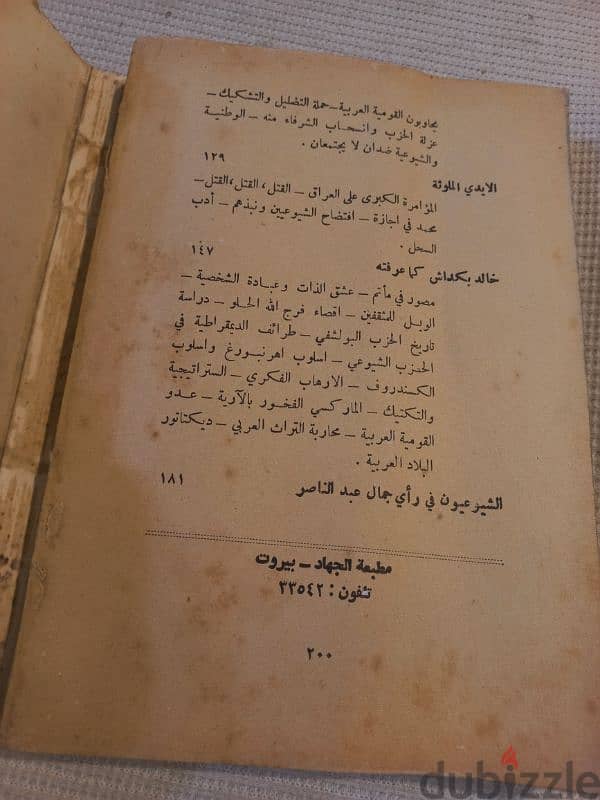 يحاربون القومية العربية – حملة التضليل والتشكيك –
عزلة الحزب وانسحاب الشرفاء منه – الوطنية
والشيوعية ضدان لا يجتمعان .
الايدي الملوثة ١٢٩
المؤامرة الكبرى على العراق – القتل، القتل، القتل –
محمد في اجازة – افتضاح الشيوعيين ونبذهم – أدب
السحل .
خالد بكداش كما عرفته ١٤٧
مصور في مأتم – عشق الذات وعبادة الشخصية –
الويل للمثقفين – اقصاء فرج الله الحلو – دراسة
تاريخ الحزب البولشفي – طرائف الديمقراطية في
الحزب الشيوعي – اسلوب اهرنبورغ واسلوب
الكسندروف – الارهاب الفكري – الستراتيجية
والتكتيك – الماركسي الفخور بالآرية – عدو
القومية العربية – محاربة التراث العربي – ديكتاتور
البلاد العربية .
الشيوعيون في رأي جمال عبد الناصر ١٨١
مطبعة الجهاد – بيروت
تلفون : ٣٣٥٤٢
٢٠٠
dubizzle